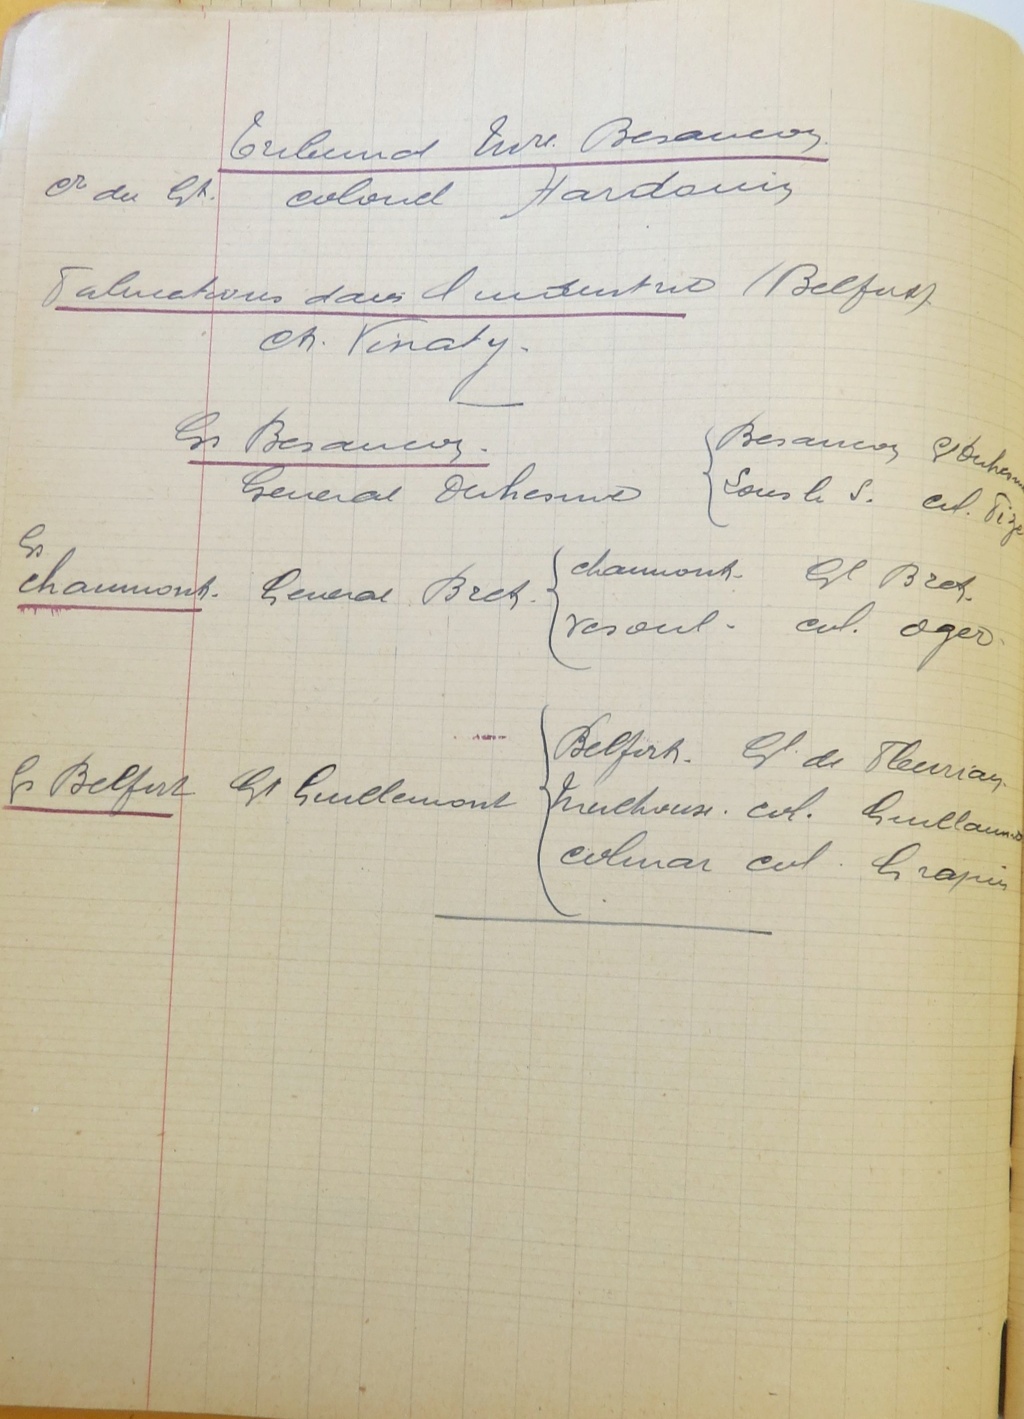 Tribunal Mre. Besançon
Cr du Gt. colonel Hardouin
Fabrications dans l'industrie (Belfort)
Ch. Vinaty.
Gs Besançon. Besançon Gl Duhesme
General Duhesme Lons le S. col.
Gs
Chaumont. General Bret. Chaumont. Gl Bret.
Vesoul. col. Oger.
Belfort. Gl de Fleurian.
Gs Belfort Gl Guillemont Mulhouse. col. Guillaume
Colmar col. Grapin